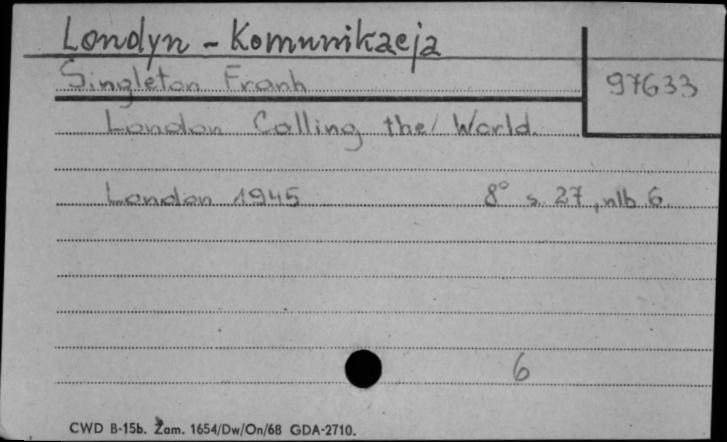 Londyn - Komunikacja
Singleton Frank
97633
London Calling the World.
London 1945 8° s. 27, nlb. 6.
6
CWD B-15b. Zam. 1654/Dw/On/68 GDA-2710.